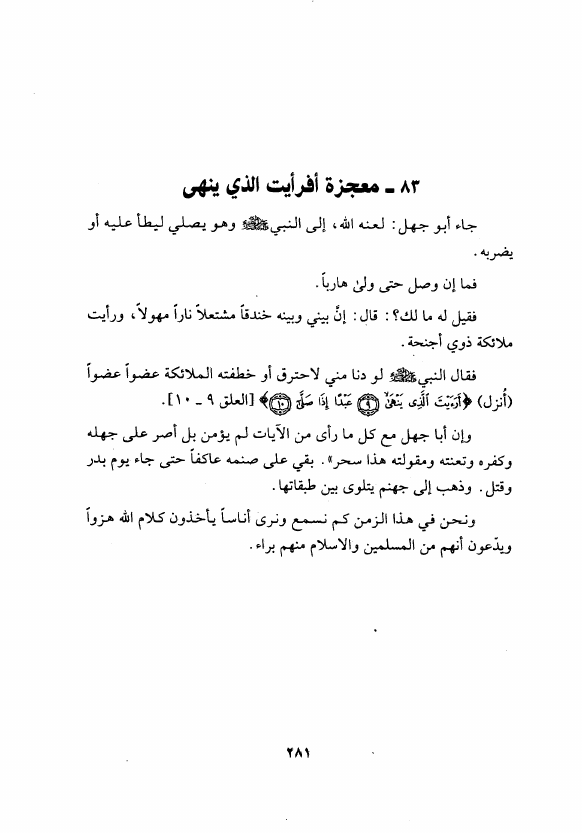 ٨٣ ـ معجزة أفرأيت الذي ينهى
جاء أبو جهل: لعنه الله، إلى النبي ﷺ وهو يصلي ليطأ عليه أو
يضربه.
فما إن وصل حتى ولىٰ هارباً.
فقيل له ما لك؟: قال: إنَّ بيني وبينه خندقاً مشتعلاً ناراً مهولاً، ورأيت
ملائكة ذوي أجنحة.
فقال النبي ﷺ لو دنا مني لاحترق أو خطفته الملائكة عضواً عضواً
(أُنزل) ﴿أَرَءَيْتَ ٱلَّذِى يَنْهَىٰ ۝٩ عَبْدًا إِذَا صَلَّىٰٓ ۝١٠﴾ [العلق ٩ ـ ١٠].
وإن أبا جهل مع كل ما رأى من الآيات لم يؤمن بل أصر على جهله
وكفره وتعنته ومقولته هذا سحر». بقي على صنمه عاكفاً حتى جاء يوم بدر
وقتل. وذهب إلى جهنم يتلوى بين طبقاتها.
ونحن في هذا الزمن كم نسمع ونرى أناساً يأخذون كلام الله هزواً
ويدّعون أنهم من المسلمين والاسلام منهم براء.
٢٨١